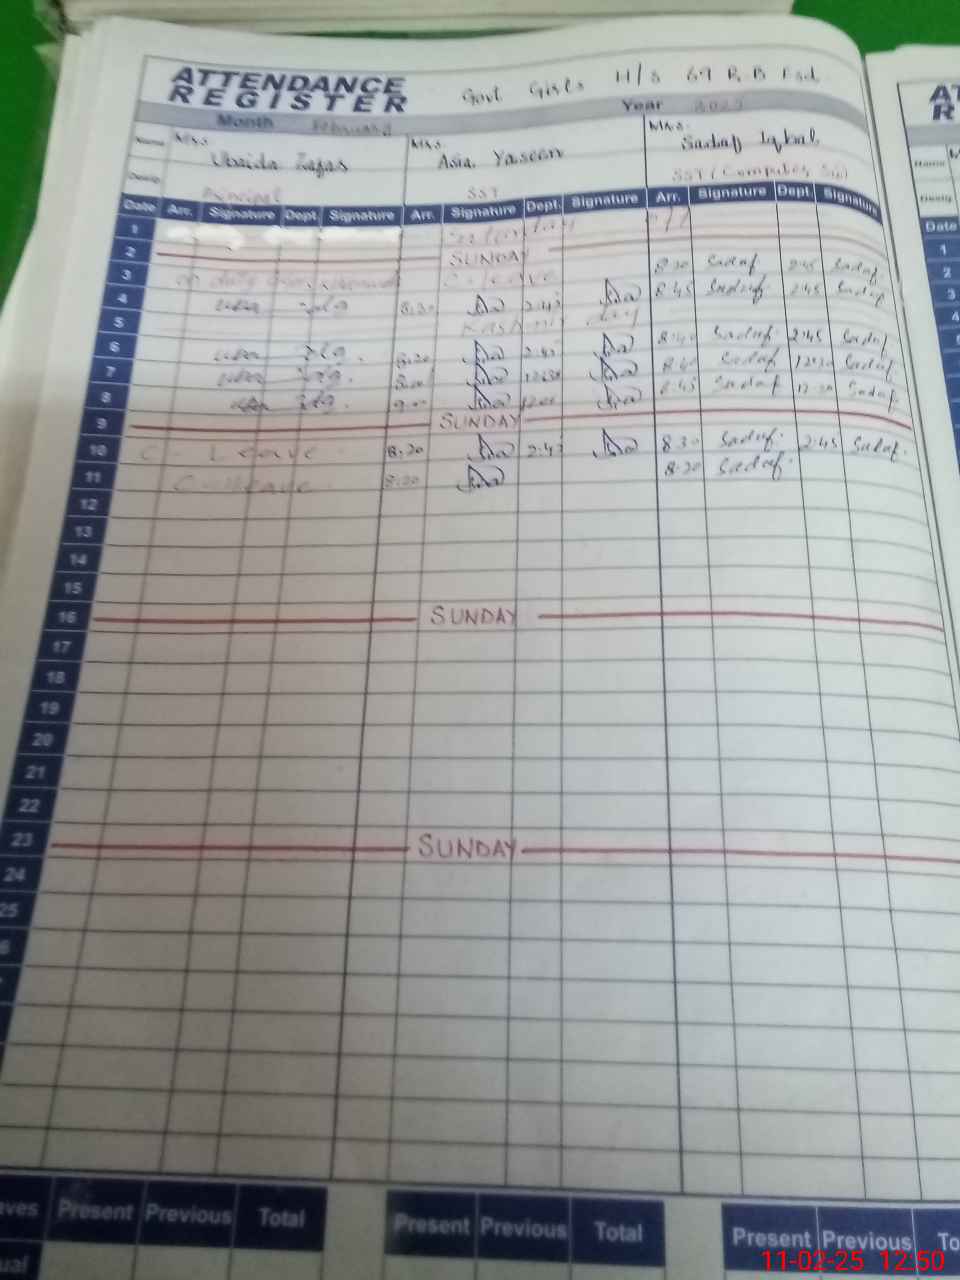 ATTENDANCE
REGISTER
Govt Girls H/S 69 R.B Fsd
Month February Year 2025
Name Mrs. Ubaida Zafar Mrs. Asia Yaseen Mrs. Sadaf Iqbal
Desig Principal SST SST (Computer Sci)
Date Arr. Signature Dept. Signature Arr. Signature Dept. Signature Arr. Signature Dept. Signature
1 Saturday
2 SUNDAY
3 on duty C. leave 8:30 Sadaf 2:45 Sadaf
4 8:30 2:45 8:45 Sadaf 2:45 Sadaf
5 Kashmir day
6 8:20 2:45 8:40 Sadaf 2:45 Sadaf
7 8:40 Sadaf 12:30 Sadaf
8 9:00 8:45 Sadaf 12:30 Sadaf
9 SUNDAY
10 C Leave 8:20 2:45 8:30 Sadaf 2:45 Sadaf
11 C. Leave 8:20 8:20 Sadaf
12
13
14
15
16 SUNDAY
17
18
19
20
21
22
23 SUNDAY
24
25
Present Previous Total Present Previous Total Present Previous
11-02-25 12:50